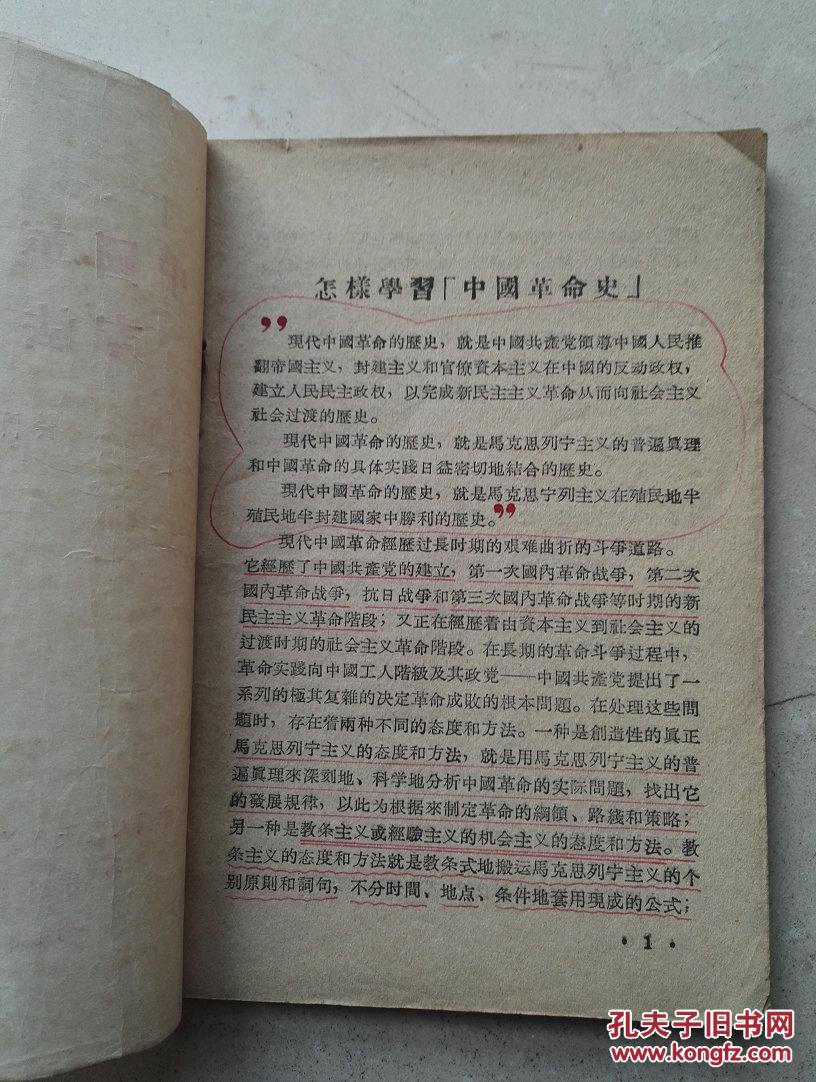 怎樣學習「中國革命史」
現代中國革命的歷史，就是中國共產党領導中國人民推
翻帝國主义，封建主义和官僚資本主义在中國的反动政权，
建立人民民主政权，以完成新民主主义革命从而向社会主义
社会过渡的歷史。
現代中國革命的歷史，就是馬克思列宁主义的普遍眞理
和中國革命的具体实践日益密切地結合的歷史。
現代中國革命的歷史，就是馬克思宁列主义在殖民地半
殖民地半封建國家中勝利的歷史。
現代中國革命經歷过長时期的艰难曲折的斗爭道路。
它經歷了中國共產党的建立，第一次國內革命战爭，第二次
國內革命战爭，抗日战爭和第三次國內革命战爭等时期的新
民主主义革命階段；又正在經歷着由資本主义到社会主义的
过渡时期的社会主义革命階段。在長期的革命斗爭过程中，
革命实践向中國工人階級及其政党——中國共產党提出了一
系列的極其复雜的决定革命成敗的根本問題。在处理这些問
題时，存在着兩种不同的态度和方法。一种是創造性的眞正
馬克思列宁主义的态度和方法，就是用馬克思列宁主义的普
遍眞理來深刻地、科学地分析中國革命的实际問題，找出它
的發展規律，以此为根据來制定革命的綱領、路綫和策略；
另一种是教条主义或經驗主义的机会主义的态度和方法。教
条主义的态度和方法就是教条式地搬运馬克思列宁主义的个
别原則和詞句，不分时間、地点、条件地套用現成的公式；
• 1 •
孔夫子旧书网
www.kongfz.com